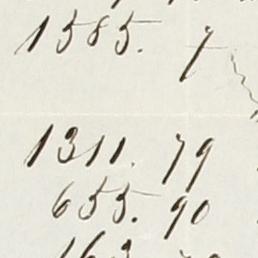 1585. 7
1311. 79
655. 90